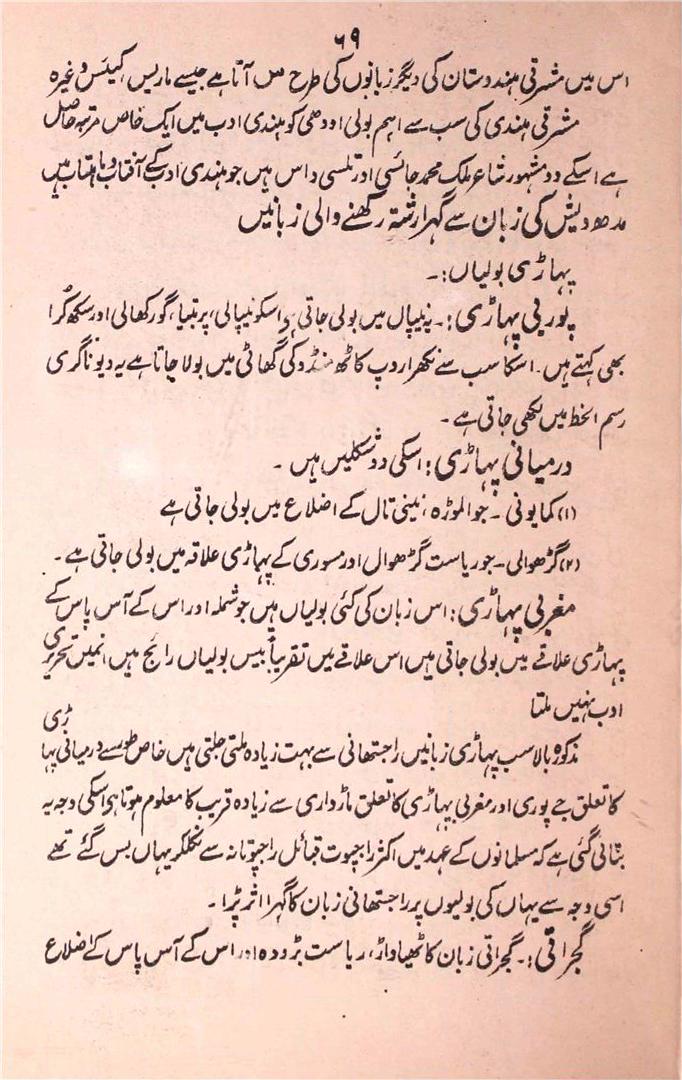 ۶۹
اس میں مشرقی ہندوستان کی دیگر زبانوں کی طرح س آتا ہے جیسے ماریس، کیئس وغیرہ
مشرقی ہندی کی سب سے اہم بولی اودھی کو ہندی ادب میں ایک خاص مرتبہ حاصل
ہے اسکے دو مشہور شاعر ملک محمد جائسی اور تلسی داس ہیں جو ہندی ادب کے آفتاب و ماہتاب ہیں
مدھ دیش کی زبان سے گہرا رشتہ رکھنے والی زبانیں
پہاڑی بولیاں:۔
پوربی پہاڑی:۔ یہ نیپال میں بولی جاتی ہے اسکو نیپالی، پربتیا، گورکھالی اور سکھ کُرا
بھی کہتے ہیں۔ اسکا سب سے نکھرا روپ کاٹھ منڈو کی گھاٹی میں بولا جاتا ہے یہ دیوناگری
رسم الخط میں لکھی جاتی ہے۔
درمیانی پہاڑی: اسکی دو شکلیں ہیں۔
(۱) کمایونی۔ جو الموڑہ، نینی تال کے اضلاع میں بولی جاتی ہے
(۲) گڑھوالی۔ جو ریاست گڑھوال اور مسوری کے پہاڑی علاقہ میں بولی جاتی ہے۔
مغربی پہاڑی: اس زبان کی کئی بولیاں ہیں جو شملہ اور اس کے آس پاس کے
پہاڑی علاقے میں بولی جاتی ہیں اس علاقے میں تقریباً بیس بولیاں رائج ہیں انمیں تحریری
ادب نہیں ملتا
مذکورہ بالا سب پہاڑی زبانیں راجستھانی سے بہت زیادہ ملتی جلتی ہیں خاص طور سے درمیانی پہاڑی
کا تعلق جے پوری اور مغربی پہاڑی کا تعلق ماڑواری سے زیادہ قریب کا معلوم ہوتا ہے اسکی وجہ یہ
بتائی گئی ہے کہ مسلمانوں کے عہد میں اکثر راجپوت قبائل راجپوتانہ سے نکلکر یہاں بس گئے تھے
اسی وجہ سے یہاں کی بولیوں پر راجستھانی زبان کا گہرا اثر پڑا۔
گجراتی:۔ گجراتی زبان کاٹھیاواڑ، ریاست بڑودہ اور اس کے آس پاس کے اضلاع